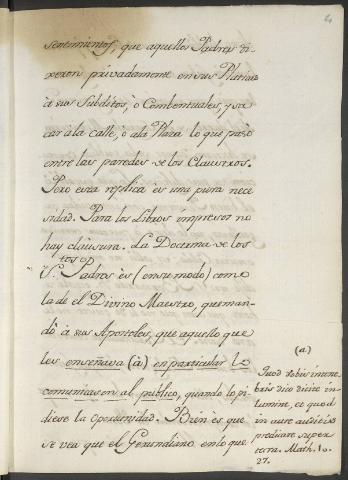 sentimientos, que aquellos Padres di-
xeron privadamente en sus Platicas
à sus Subditos, ò Combentuales, y sa-
car à la calle, ò à la Plaza lo que pasò
entre las paredes de los Claustros.
Pero esta replica es una pura nece-
sidad. Para los Libros impresos no
hay clausura. La Doctrina de los
S.tos Padres ès (en su modo) como
la de el Divino Maestro, que man-
dò à sus Apostoles, que aquello que
les enseñava (à) en particular lo
comunicasen al público, quando lo pi-
diese la oportunidad. Bien es que
se vea que el Gerundiano en lo que
(a)
Quod vobis in tene-
bris dico dicite in
lumine, et quod
in aure auditis
predicate super
terra. Math. 10.
27.